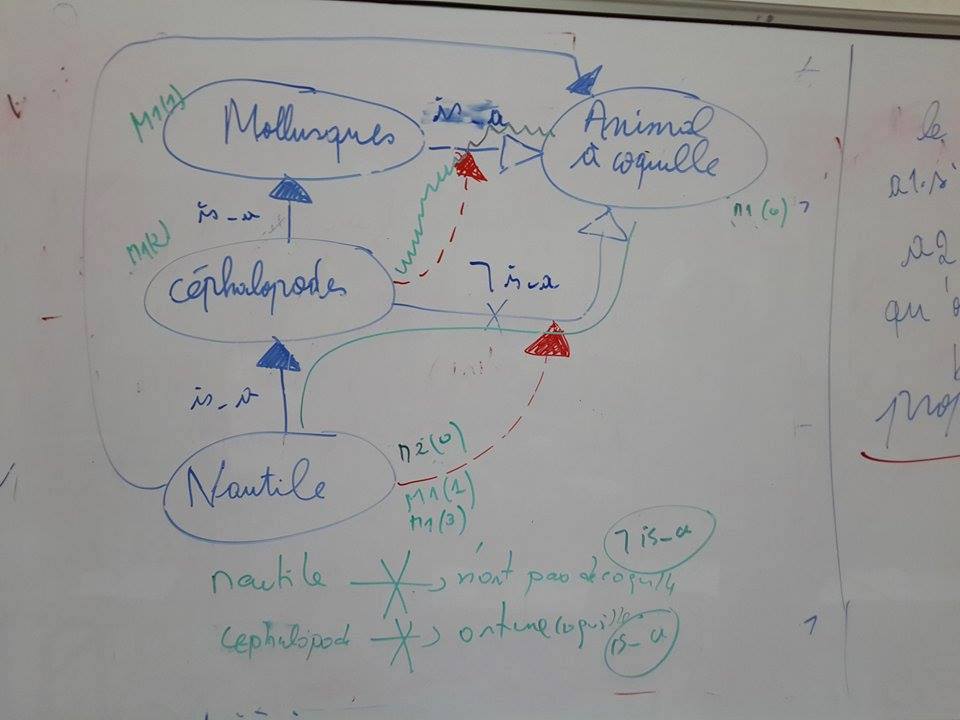 M1(1)
Mollusques
is_a
Animal
à coquille
M1(0)
is_a
M1(2)
céphalopodes
¬ is_a
is_a
Nautile
M2(0)
M1(1)
M1(3)
¬ is_a
nautile n'ont pas de coquille
cephalopod ont une coquille
is_a
le
a1.
a2
qu'
prop